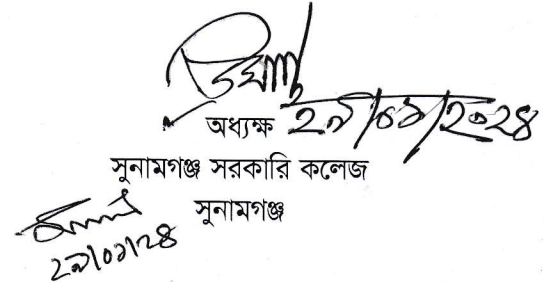 অধ্যক্ষ ২৯/০১/২০২৪
সুনামগঞ্জ সরকারি কলেজ
সুনামগঞ্জ
২৯/০১/২৪